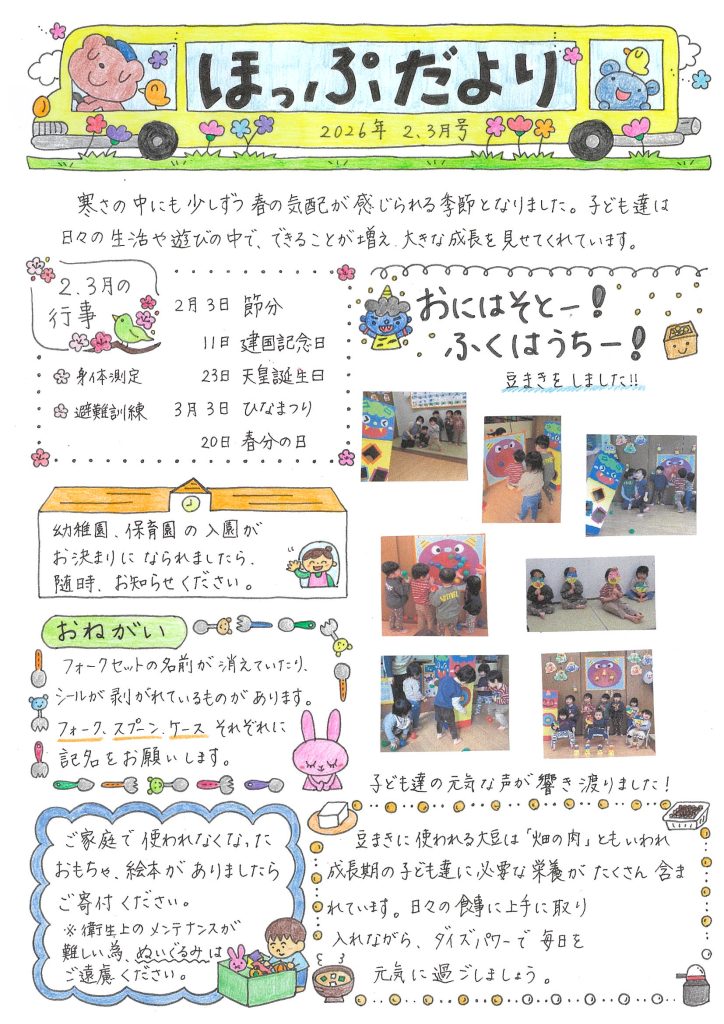 ほっぷだより
2026年 2、3月号
寒さの中にも少しずつ春の気配が感じられる季節となりました。子ども達は
日々の生活や遊びの中で、できることが増え、大きな成長を見せてくれています。
2、3月の
行事
身体測定
避難訓練
2月3日 節分
11日 建国記念日
23日 天皇誕生日
3月3日 ひなまつり
20日 春分の日
おにはそとー!
ふくはうちー!
豆まきをしました!!
子ども達の元気な声が響き渡りました!
幼稚園、保育園の入園が
お決まりになられましたら、
随時、お知らせください。
おねがい
フォークセットの名前が消えていたり、
シールが剥がれているものがあります。
フォーク、スプーン、ケース それぞれに
記名をお願いします。
ご家庭で使われなくなった
おもちゃ、絵本がありましたら
ご寄付ください。
※衛生上のメンテナンスが
難しい為、ぬいぐるみは
ご遠慮ください。
豆まきに使われる大豆は「畑の肉」ともいわれ
成長期の子ども達に必要な栄養がたくさん含ま
れています。日々の食事に上手に取り
入れながら、ダイズパワーで毎日を
元気に過ごしましょう。